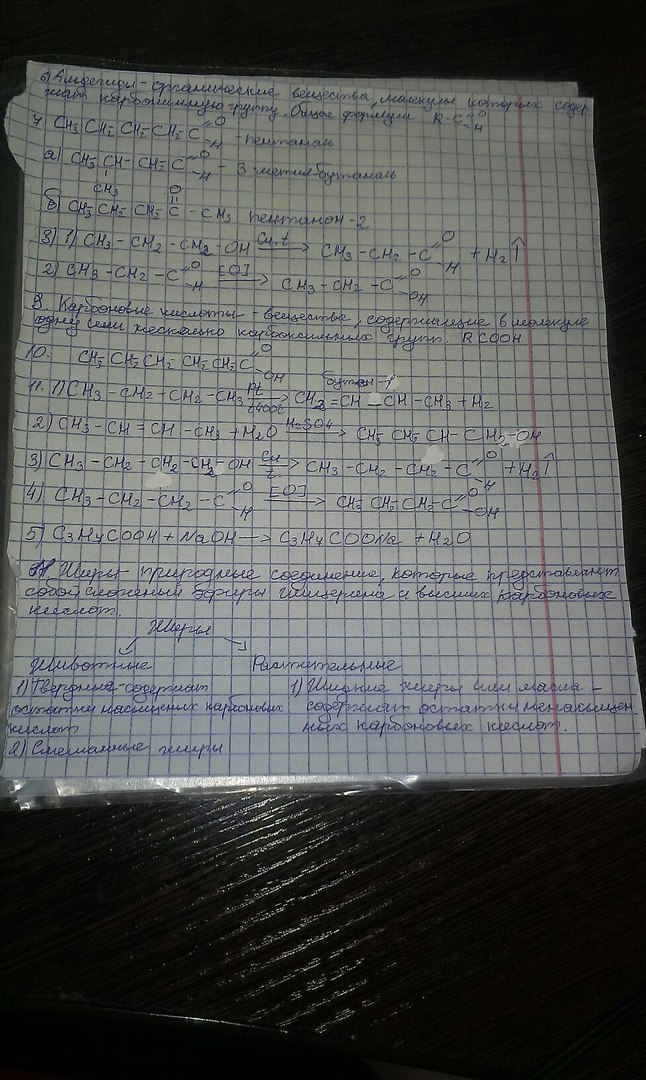 6) Альдегиды - органические вещества, молекулы которых содер
жат карбонильную группу. Общая формула R-C=O -H
7. CH3 CH2 CH2 CH2 C=O -H - пентаналь
а) CH3 CH - CH2 C=O -H - 3 метил бутаналь
CH3
O
б) CH3 CH2 CH2 C - CH3 пентанон-2
8) 1) CH3 - CH2 - CH2 - OH Cu, t → CH3 - CH2 - C=O -H + H2↑
2) CH3 - CH2 - C=O -H [O] → CH3 - CH2 - C=O -OH
9. Карбоновые кислоты - вещества, содержащие в молекуле
одну или несколько карбоксильных групп. RCOOH
10. CH3 CH2 CH2 CH2 CH2 C=O -OH
бутен-1
11. 1) CH3 - CH2 - CH2 - CH3 Pt t400t → CH2 = CH - CH - CH3 + H2
2) CH3 - CH = CH - CH3 + H2O H2SO4 → CH3 CH2 CH - CH2 - OH
3) CH3 - CH2 - CH2 - CH2 - OH Cu t → CH3 - CH2 - CH2 - C=O -H + H2↑
4) CH3 - CH2 - CH2 - C=O -H [O] → CH3 CH2 CH2 C=O -OH
5) C3H4COOH + NaOH → C3H4COONa + H2O
Жиры - природные соединение, которые представляют
собой сложеные эфиры глицерина и высших карбоновых
кислот.
Жиры
Животные Растительные
1) Твердые - содержат 1) Жидкие жиры или масла -
остатки насыщеных карбоновых содержат остатки ненасыщен
кислот ных карбоновых кислот.
2) Смешанные жиры